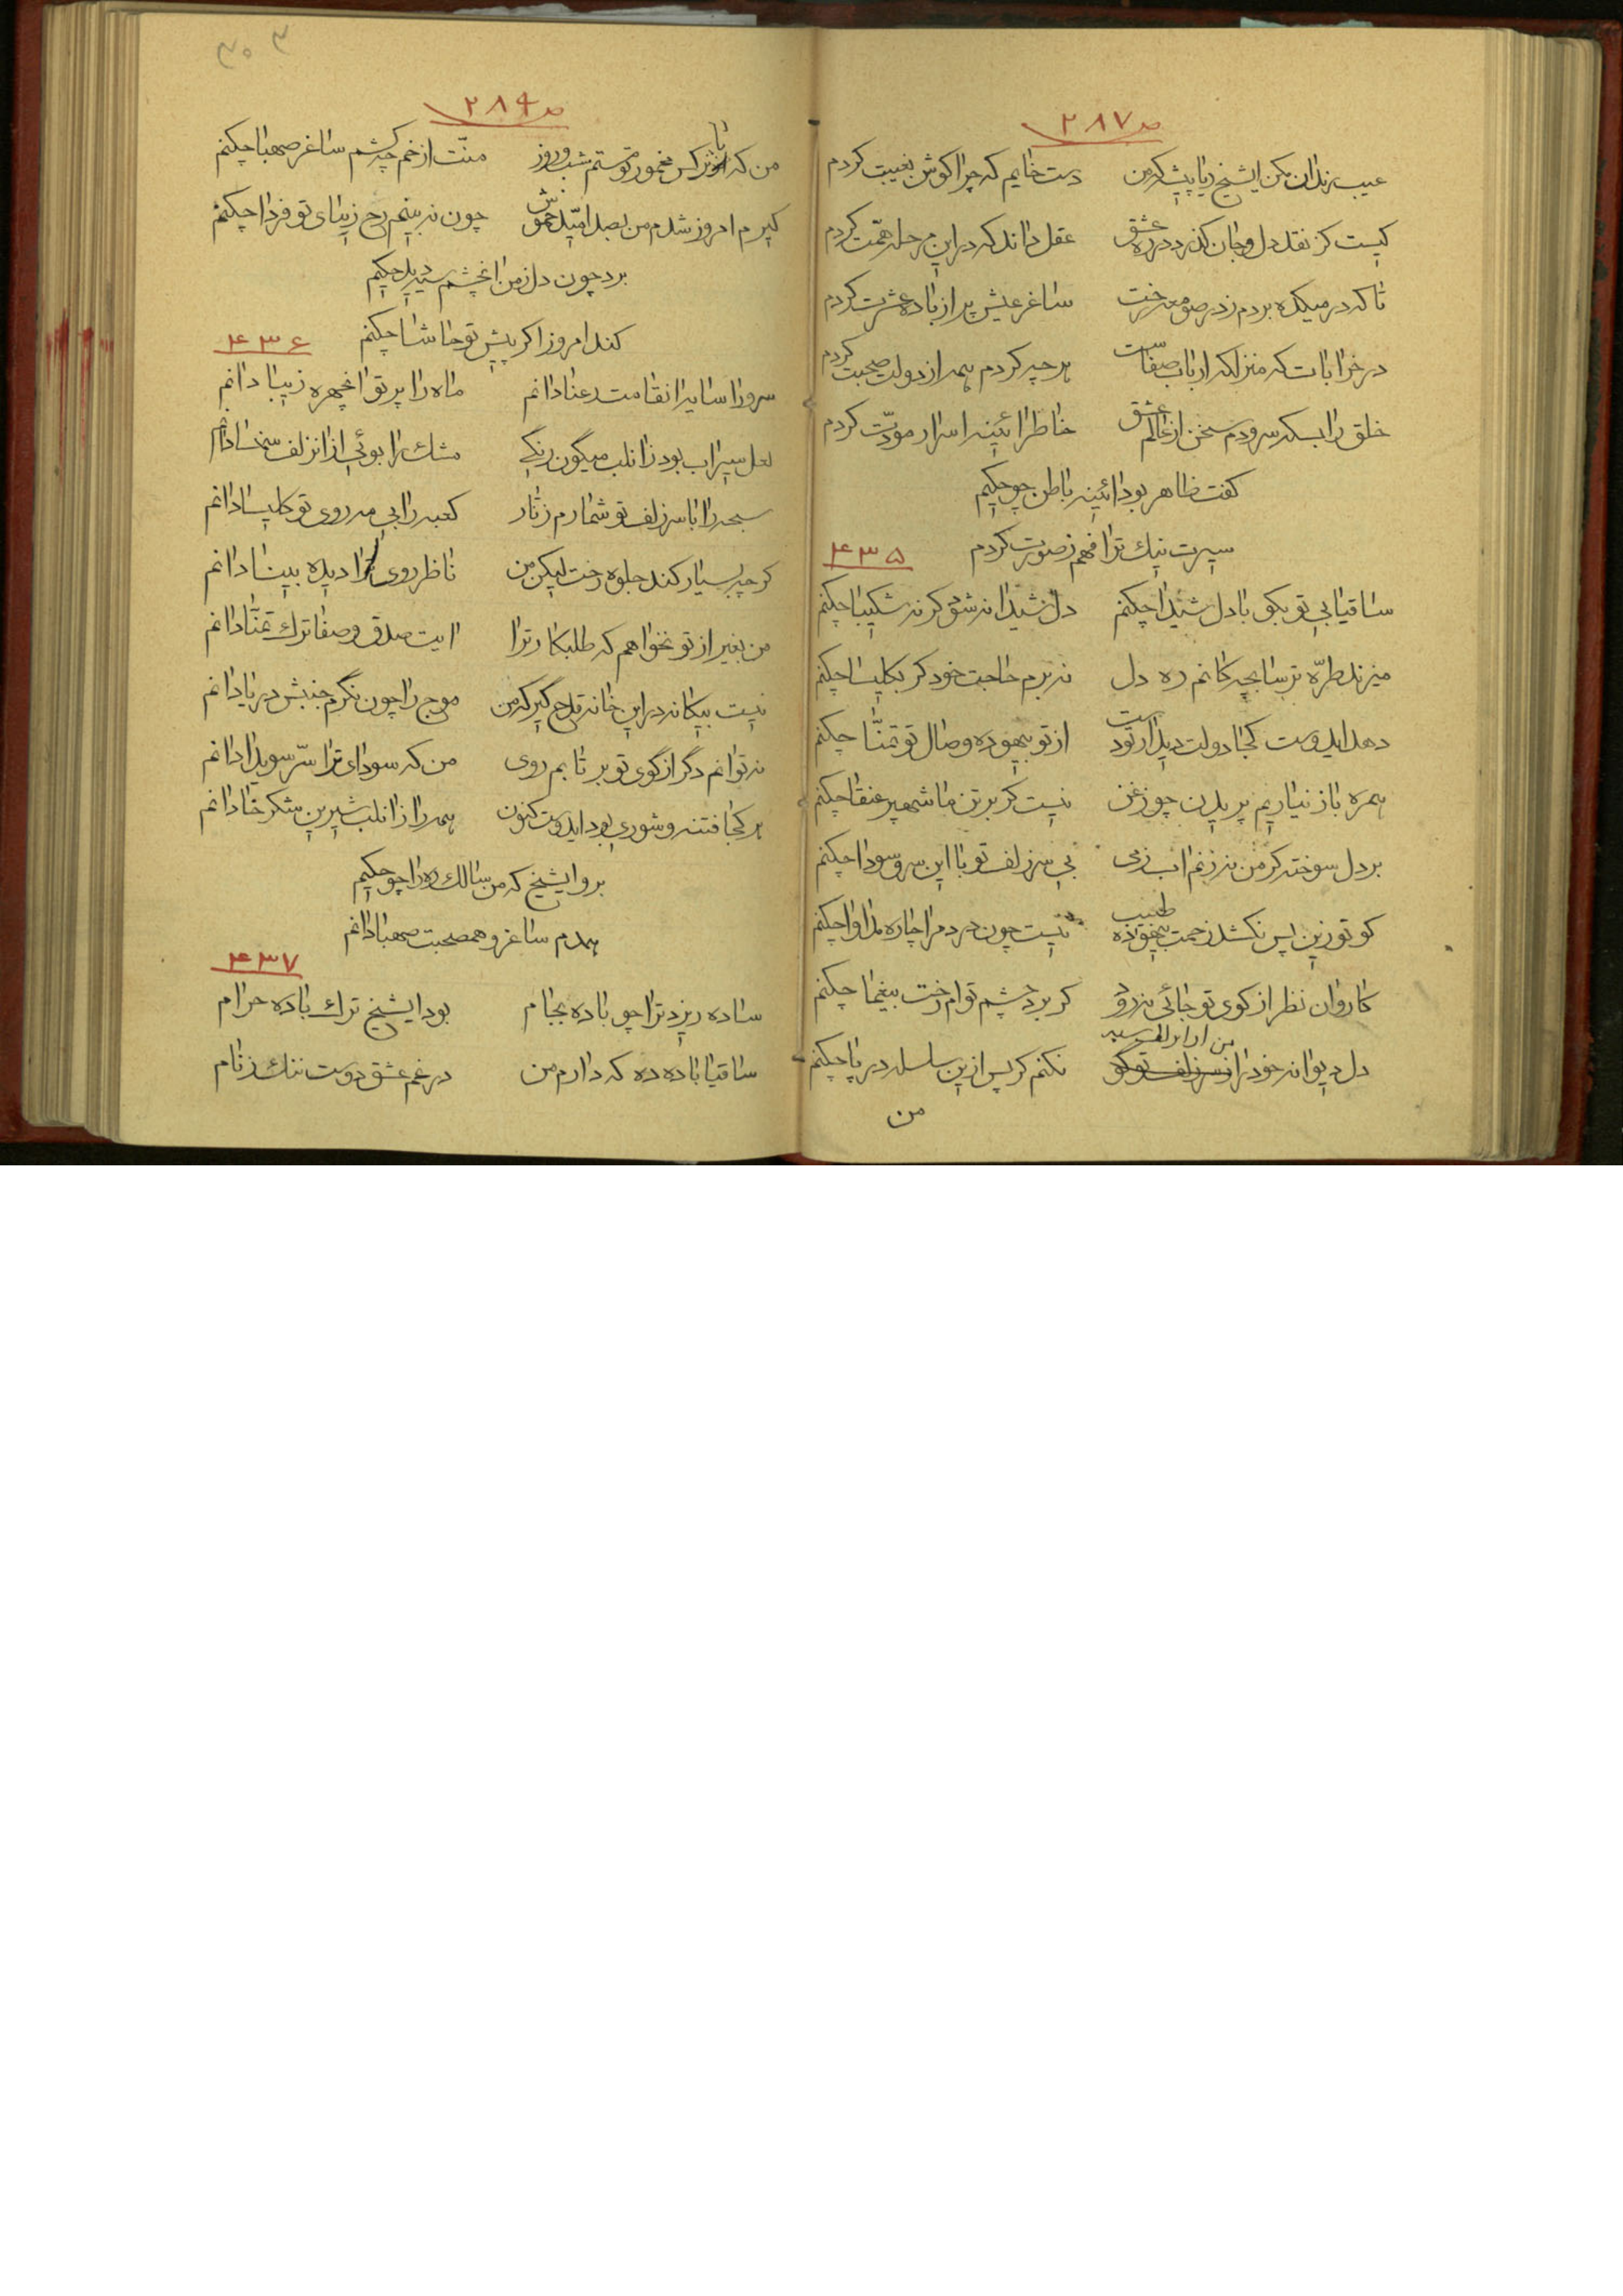 ص ۲۸۷
عیب رندان مکن ایشیخ ریا پیشه که من دست خایم که چرا گوش بغیبت کردم
کیست کز نقد دل و جان گذرد در ره عشق عقل داند که در این مرحله همّت کردم
تا که در میکده بردم ز در صومعه رخت ساغر عیش پر از باده عشرت کردم
در خرابات که منزلگه ارباب صفاست هر چه کردم همه از دولت صحبت کردم
خلق را بسکه سرودم سخن از عالم عشق خاطر ائینه اسرار مودّت کردم
گفت ظاهر بود ائینه باطن چو حکیم
سیرت نیک ترا فهم ز صورت کردم
۴۳۵
ساقیا بی تو بگو با دل شیدا چکنم دل شیدا نه شد گر نه شکیبا چکنم
میزند طرّه ترسا بچه کانم ره دل نه برم حاجت خود گر بکلیسا چکنم
دهد ایدوست کجا دولت دیدار تو دست از تو بیهوده وصال تو تمنّا چکنم
همره باز نیاریم پریدن چو زغن نیست گر بر تن ما شهپر عنقا چکنم
بر دل سوخته گر من نه زنم اب زمی بی سر زلف تو با این سر و سودا چکنم
گو تو زین پس نکشد زحمت بیهوده طبیب نیست چون درد مرا چاره مداوا چکنم
کاروان نظر از کوی تو جائی نرود گر برد چشم توام رخت بیغما چکنم
دل دیوانه خود را من از ان زلف سیه نکنم گر پس ازین سلسله در پا چکنم
من
۳۰۳
ص ۲۸۹
من که با نرگس مخمور تو مستم شب و روز منّت از خم چه کشم ساغر صهبا چکنم
گیرم امروز شدم من بصد امّید خموش چون نه بینم رخ زیبای تو فردا چکنم
برد چون دل ز من انچشم سیه دید حکیم
کند امروز اگر پیش تو حاشا چکنم
۴۳۶
سرو را سایه انقامت رعنا دانم ماه را پرتو انچهره زیبا دانم
لعل سیراب بود زانلب میگون رنگی مشک را بوئی از انزلف سمنسا دانم
سبحه را با سر زلف تو شمارم زنّار کعبه را بی مه روی تو کلیسا دانم
گر چه بسیار کند جلوه رخت لیکن من ناظر روی ترا دیده بینا دانم
من بغیر از تو نخواهم که طلبکار ترا ایت صدق و صفا ترک تمنّا دانم
نیست بیگانه در این خانه قدح گیر که من موج را چون نگرم جنبش دریا دانم
نه توانم دگر از کوی تو بر تابم روی من که سودای ترا سّر سویدا دانم
هر کجا فتنه و شوری بود ایدوست کنون همه را زانلب شیرین شکر خا دانم
برو ایشیخ که من سالک ره را چو حکیم
همدم ساغر و همصحبت صهبا دانم
۴۳۷
ساده ریزد ترا چو باده بجام بود ایشیخ ترک باده حرام
ساقیا باده ده که دارم من در غم عشق دوست ننگ ز نام